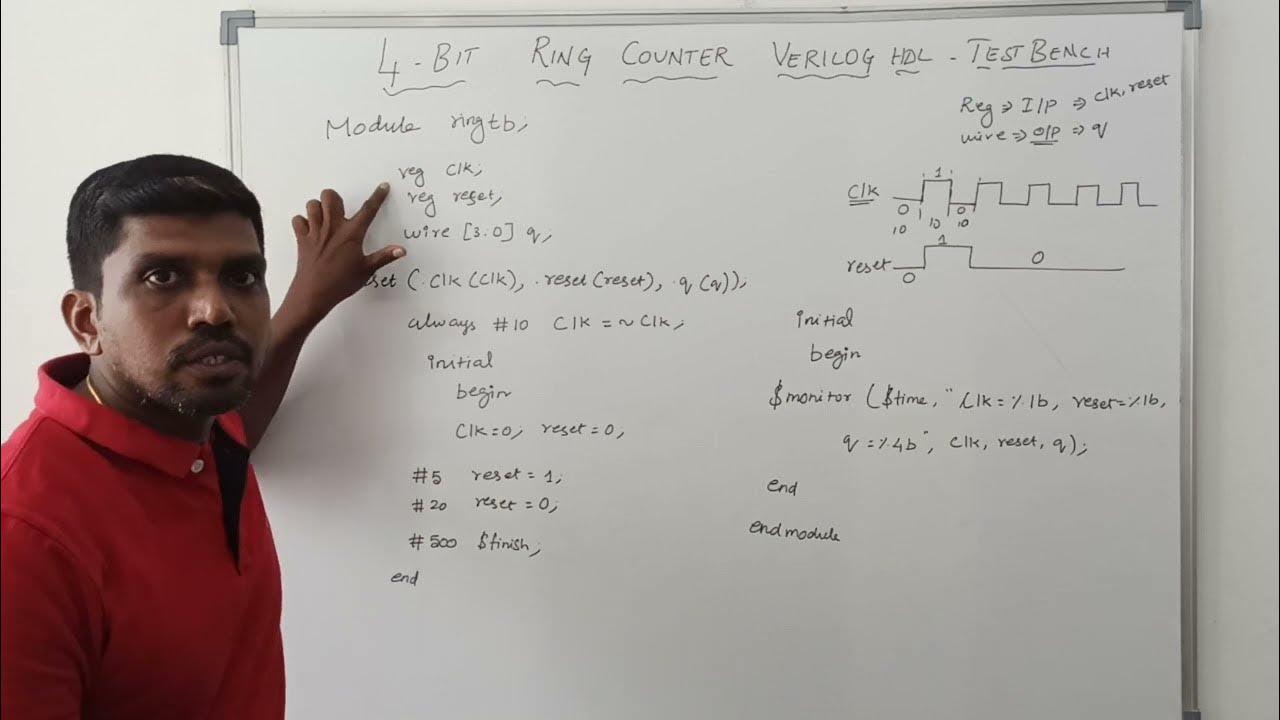 4-BIT RING COUNTER VERILOG HDL - TEST BENCH
Module ringtb;
reg clk;
reg reset;
wire [3:0] q;
(.clk(clk), .reset(reset), .q(q));
always #10 clk = ~clk;
initial
begin
clk=0; reset=0;
#5 reset = 1;
#20 reset = 0;
#500 $finish;
end
Reg ⇒ I/P ⇒ clk, reset
wire ⇒ O/P ⇒ q
clk
1
0 0
10 10 10
reset
1
0 0
initial
begin
$monitor ($time, "clk=%1b, reset=%1b,
q=%4b", clk, reset, q);
end
endmodule